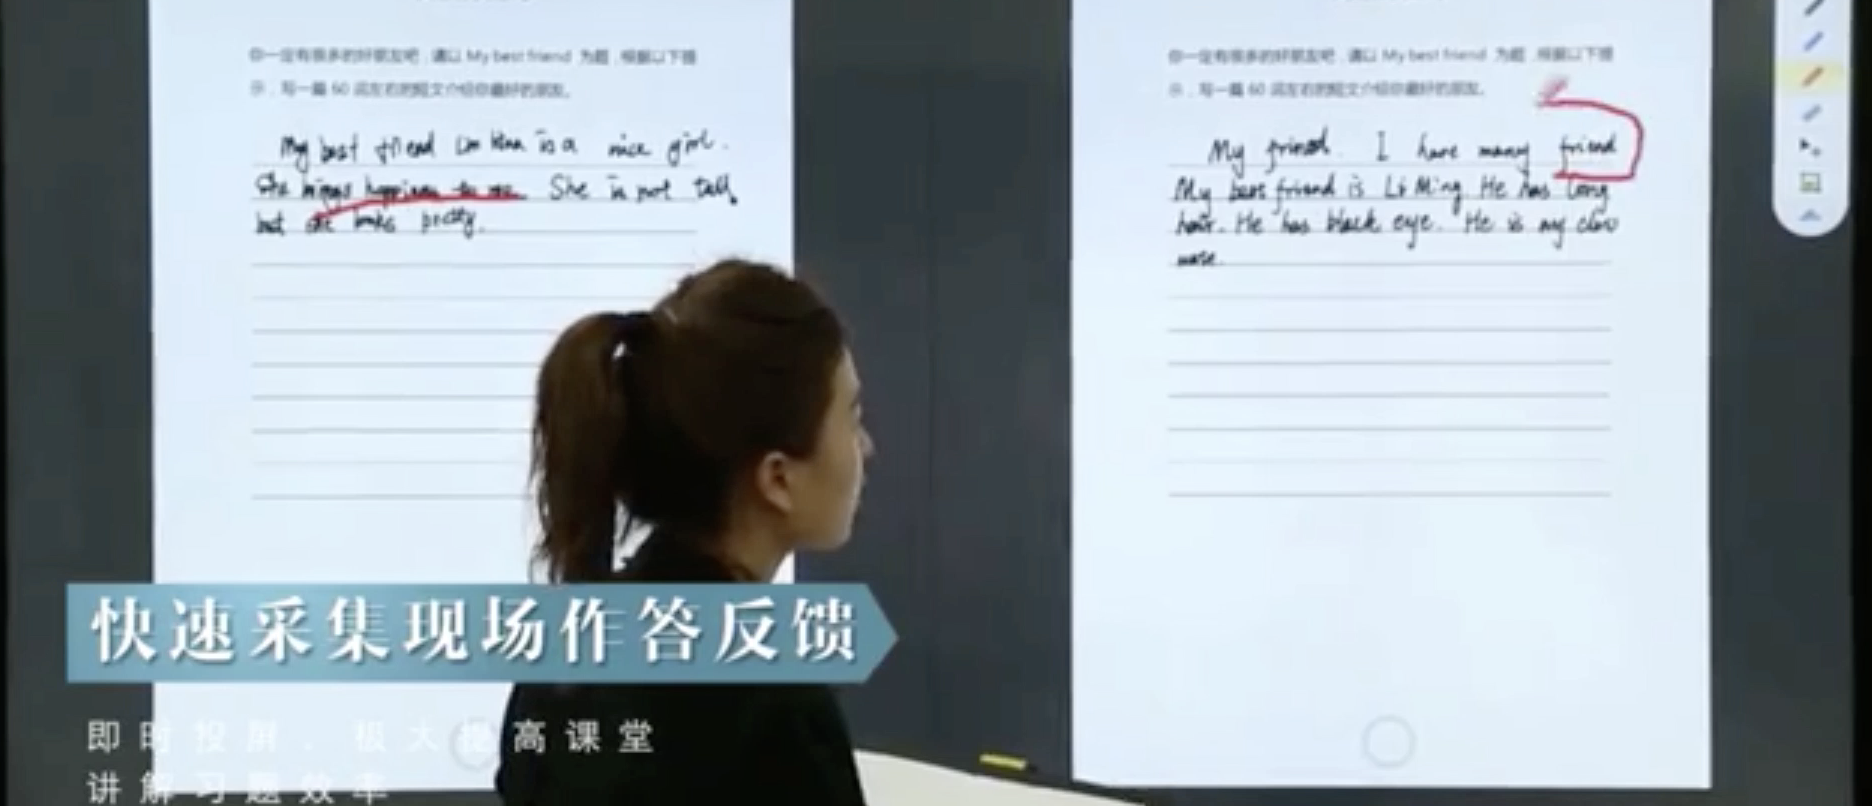 你一定有很多的好朋友吧，请以 My best friend 为题，根据以下提
示，写一篇 60 词左右的短文介绍你最好的朋友。
My best friend is a nice girl.
She happiness to me. She is not tall,
but she looks pretty.
你一定有很多的好朋友吧，请以 My best friend 为题，根据以下提
示，写一篇 60 词左右的短文介绍你最好的朋友。
My friend. I have many friend
My best friend is Li Ming. He has long
hair. He has black eye. He is my class
mate.
快速采集现场作答反馈
即时投屏，极大提高课堂
讲解习题效率